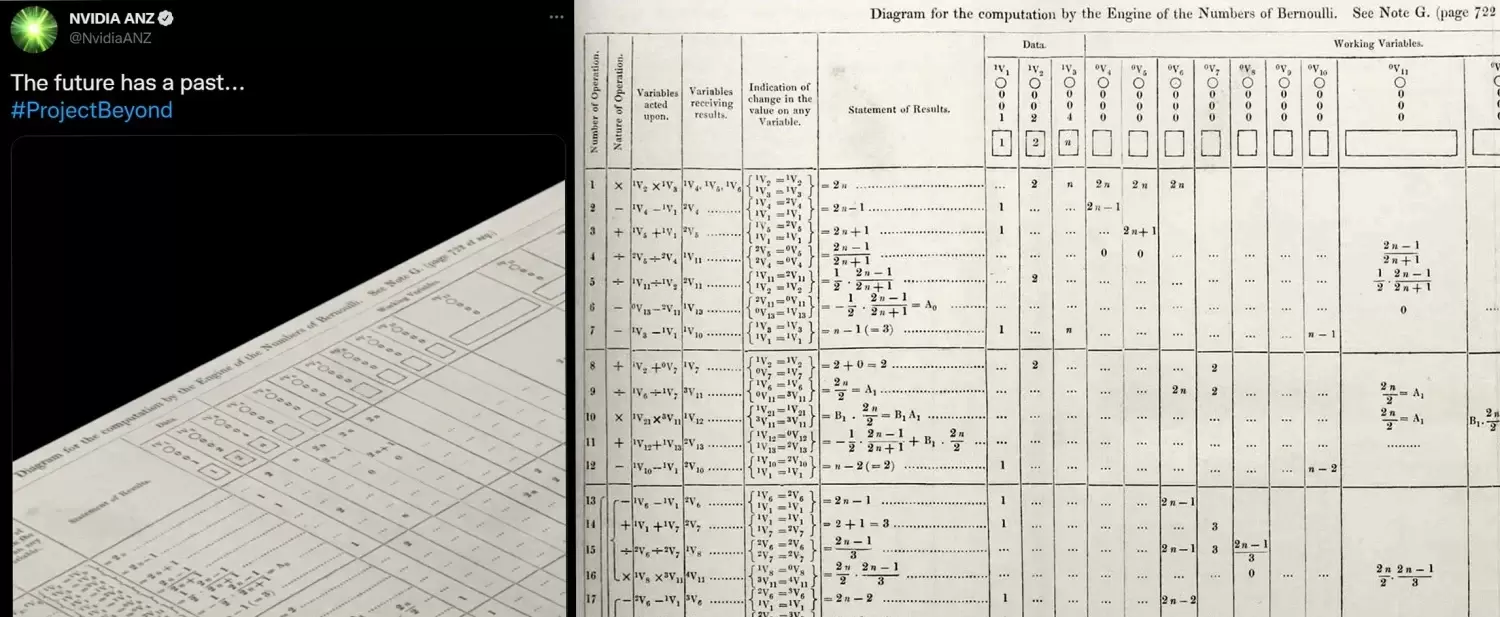 NVIDIA ANZ
@NvidiaANZ
The future has a past...
#ProjectBeyond
Diagram for the computation by the Engine of the Numbers of Bernoulli. See Note G. (page 722 et seq.)
Data.
Working Variables.
Statement of Results.
Diagram for the computation by the Engine of the Numbers of Bernoulli. See Note G. (page 722
Number of Operation.
Nature of Operation.
Variables acted upon.
Variables receiving results.
Indication of change in the value on any Variable.
Statement of Results.
Data.
Working Variables.
¹V₁ ¹V₂ ¹V₃ ⁰V₄ ⁰V₅ ⁰V₆ ⁰V₇ ⁰V₈ ⁰V₉ ⁰V₁₀ ⁰V₁₁
○ ○ ○ ○ ○ ○ ○ ○ ○ ○ ○
0 0 0 0 0 0 0 0 0 0 0
0 0 0 0 0 0 0 0 0 0 0
1 2 4 0 0 0 0 0 0 0 0
1 2 n
1 × ¹V₂ × ¹V₃ ¹V₄, ¹V₅, ¹V₆ {¹V₂ = ¹V₂ ¹V₃ = ¹V₃} = 2n ... 2 n 2n 2n 2n
2 − ¹V₄ − ¹V₁ ²V₄ {¹V₄ = ²V₄ ¹V₁ = ¹V₁} = 2n − 1 1 ... ... 2n − 1
3 + ¹V₅ + ¹V₁ ²V₅ {¹V₅ = ²V₅ ¹V₁ = ¹V₁} = 2n + 1 1 ... ... ... 2n + 1
4 ÷ ²V₅ ÷ ²V₄ ¹V₁₁ {²V₅ = ⁰V₅ ²V₄ = ⁰V₄} = (2n − 1)/(2n + 1) ... ... ... 0 0 ... (2n − 1)/(2n + 1)
5 ÷ ¹V₁₁ ÷ ¹V₂ ²V₁₁ {¹V₁₁ = ²V₁₁ ¹V₂ = ¹V₂} = 1/2 · (2n − 1)/(2n + 1) ... 2 ... 1/2 · (2n − 1)/(2n + 1)
6 − ⁰V₁₃ − ²V₁₁ ¹V₁₃ {²V₁₁ = ⁰V₁₁ ⁰V₁₃ = ¹V₁₃} = − 1/2 · (2n − 1)/(2n + 1) = A₀ ... 0
7 − ¹V₃ − ¹V₁ ¹V₁₀ {¹V₃ = ¹V₃ ¹V₁ = ¹V₁} = n − 1 (= 3) 1 ... n ... n − 1
8 + ¹V₂ + ⁰V₇ ¹V₇ {¹V₂ = ¹V₂ ⁰V₇ = ¹V₇} = 2 + 0 = 2 ... 2 ... 2
9 ÷ ¹V₆ ÷ ¹V₇ ³V₁₁ {¹V₆ = ¹V₆ ⁰V₁₁ = ³V₁₁} = 2n/2 = A₁ ... 2n 2 ... 2n/2 = A₁
10 × ¹V₂₁ × ³V₁₁ ¹V₁₂ {¹V₂₁ = ¹V₂₁ ³V₁₁ = ³V₁₁} = B₁ · 2n/2 = B₁ A₁ ... 2n/2 = A₁ B₁ · 2n/2
11 + ¹V₁₂ + ¹V₁₃ ²V₁₃ {¹V₁₂ = ⁰V₁₂ ¹V₁₃ = ²V₁₃} = − 1/2 · (2n − 1)/(2n + 1) + B₁ · 2n/2 ...
12 − ¹V₁₀ − ¹V₁ ²V₁₀ {¹V₁₀ = ²V₁₀ ¹V₁ = ¹V₁} = n − 2 (= 2) 1 ... n − 2
13 − ¹V₆ − ¹V₁ ²V₆ {¹V₆ = ²V₆ ¹V₁ = ¹V₁} = 2n − 1 1 ... 2n − 1
14 + ¹V₁ + ¹V₇ ²V₇ {¹V₁ = ¹V₁ ¹V₇ = ²V₇} = 2 + 1 = 3 1 ... 3
15 ÷ ²V₆ ÷ ²V₇ ¹V₈ {²V₆ = ²V₆ ²V₇ = ²V₇} = (2n − 1)/3 ... 2n − 1 3 (2n − 1)/3
16 × ¹V₈ × ³V₁₁ ⁴V₁₁ {¹V₈ = ⁰V₈ ³V₁₁ = ⁴V₁₁} = 2n/2 · (2n − 1)/3 ... 0 ... 2n/2 · (2n − 1)/3
17 − ²V₆ − ¹V₁ ³V₆ {²V₆ = ³V₆ ¹V₁ = ¹V₁} = 2n − 2 1 ... 2n − 2